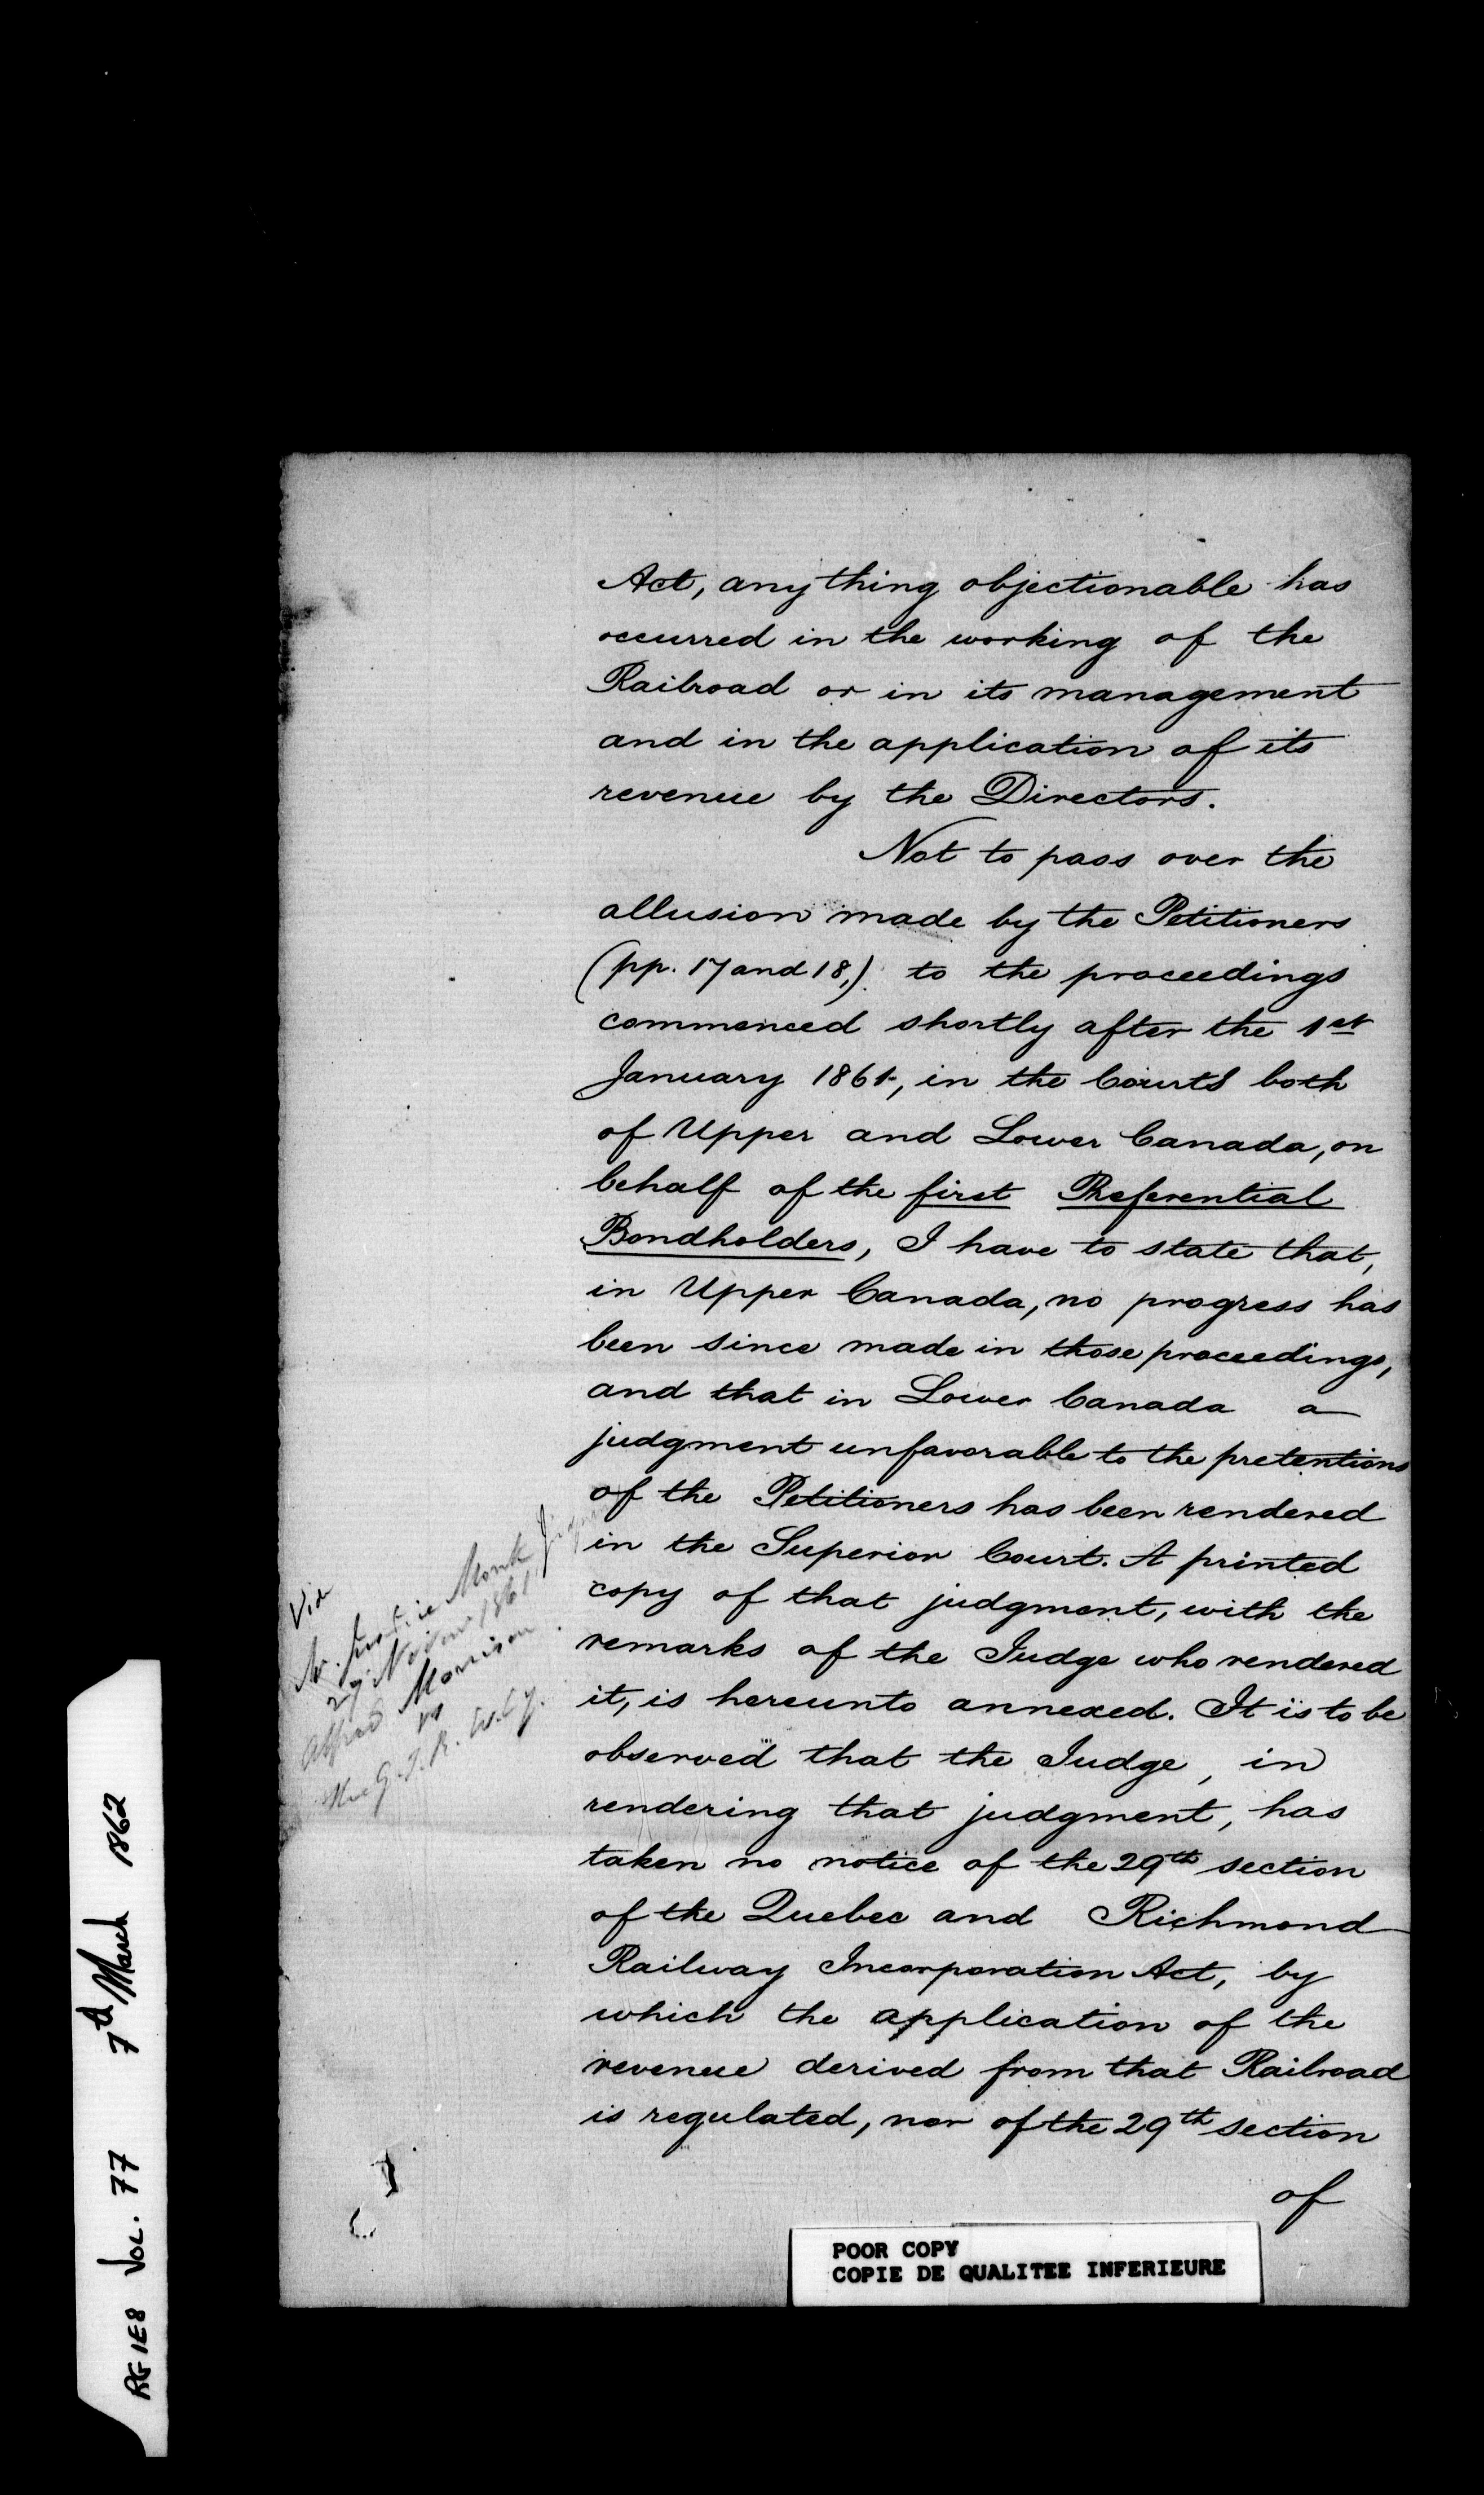 Act, any thing objectionable has
occurred in the working of the
Railroad or in its management
and in the application of its
revenue by the Directors.
Not to pass over the
allusion made by the Petitioners
(pp. 17 and 18,) to the proceedings
commenced shortly after the 1st
January 1861, in the Courts both
of Upper and Lower Canada, on
behalf of the first Preferential
Bondholders, I have to state that,
in Upper Canada, no progress has
been since made in those proceedings,
and that in Lower Canada a
judgment unfavorable to the pretentions
of the Petitioners has been rendered
in the Superior Court. A printed
copy of that judgment, with the
remarks of the Judge who rendered
it, is hereunto annexed. It is to be
observed that the Judge, in
rendering that judgment, has
taken no notice of the 29th section
of the Quebec and Richmond
Railway Incorporation Act, by
which the application of the
revenue derived from that Railroad
is regulated, nor of the 29th section
of
Vide
Mr. Justice Monk
1861
Alfred Morrison
vs
The G. T. R.
POOR COPY
COPIE DE QUALITEE INFERIEURE
RG 1E8 VOL. 77 7th March 1862